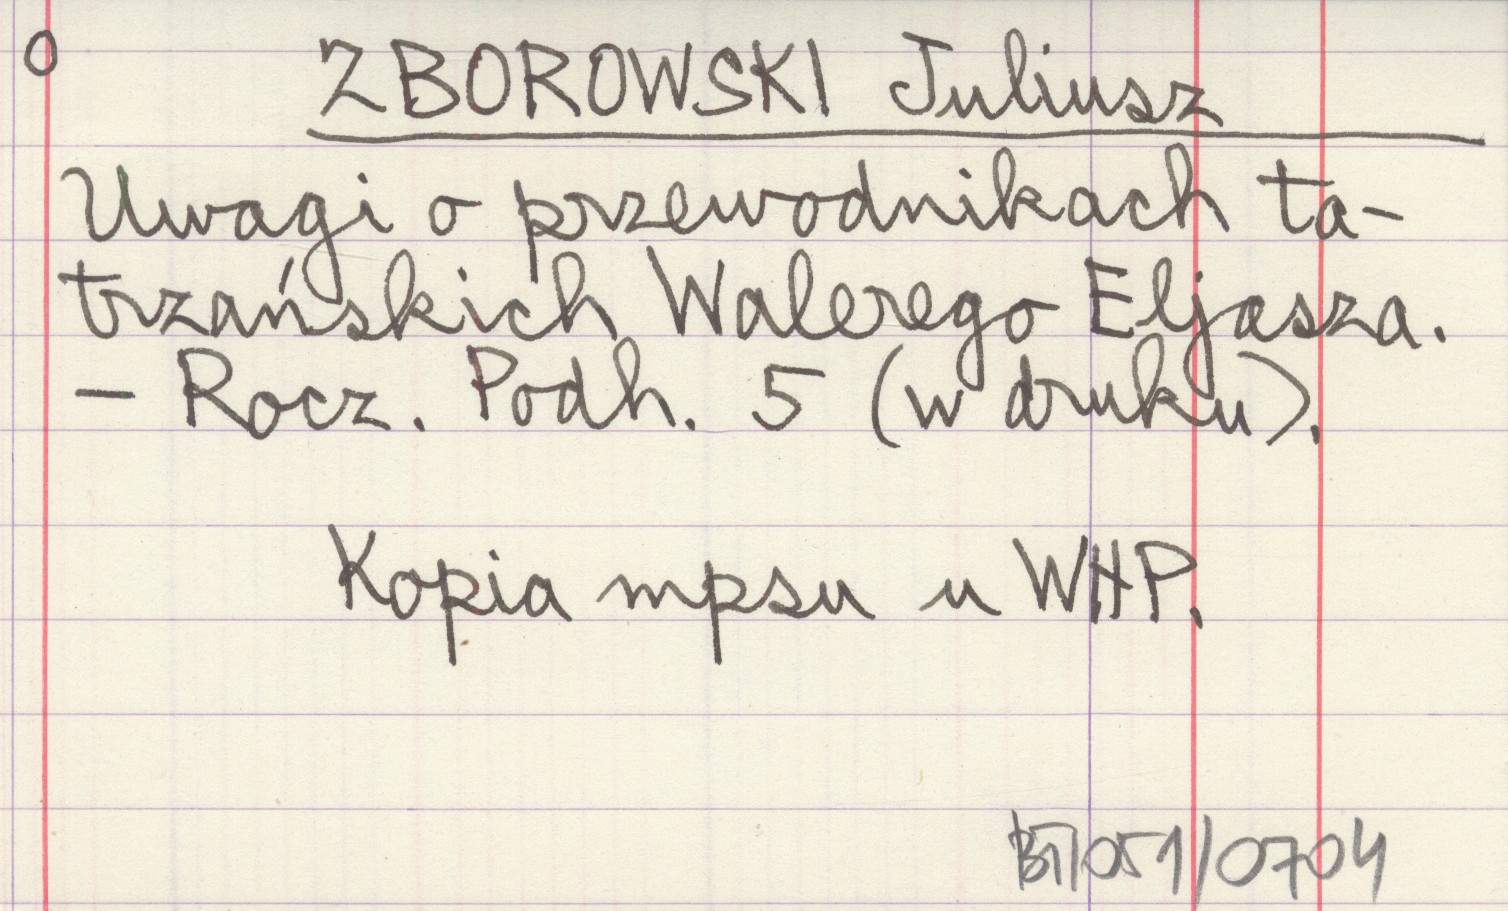 0 ZBOROWSKI Juliusz
Uwagi o przewodnikach ta-
trzańskich Walerego Eljasza.
- Rocz. Podh. 5 (w druku).
Kopia mpsu u WHP.
BT/051/0704